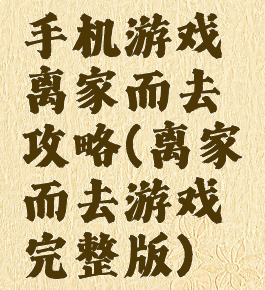 手机游戏
离家而去
攻略(离家
而去游戏
完整版)